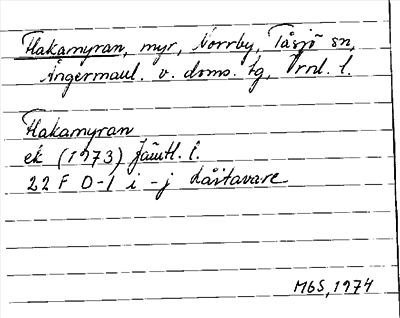 Flakamyran, myr, Norrby, Tåsjö sn,
Ångermanl. v. doms. tg, Vrnl. l.
Flakamyran
ek (1973) Jämtl. l.
22 F 0-1 i - j Råitavare
MbS, 1974